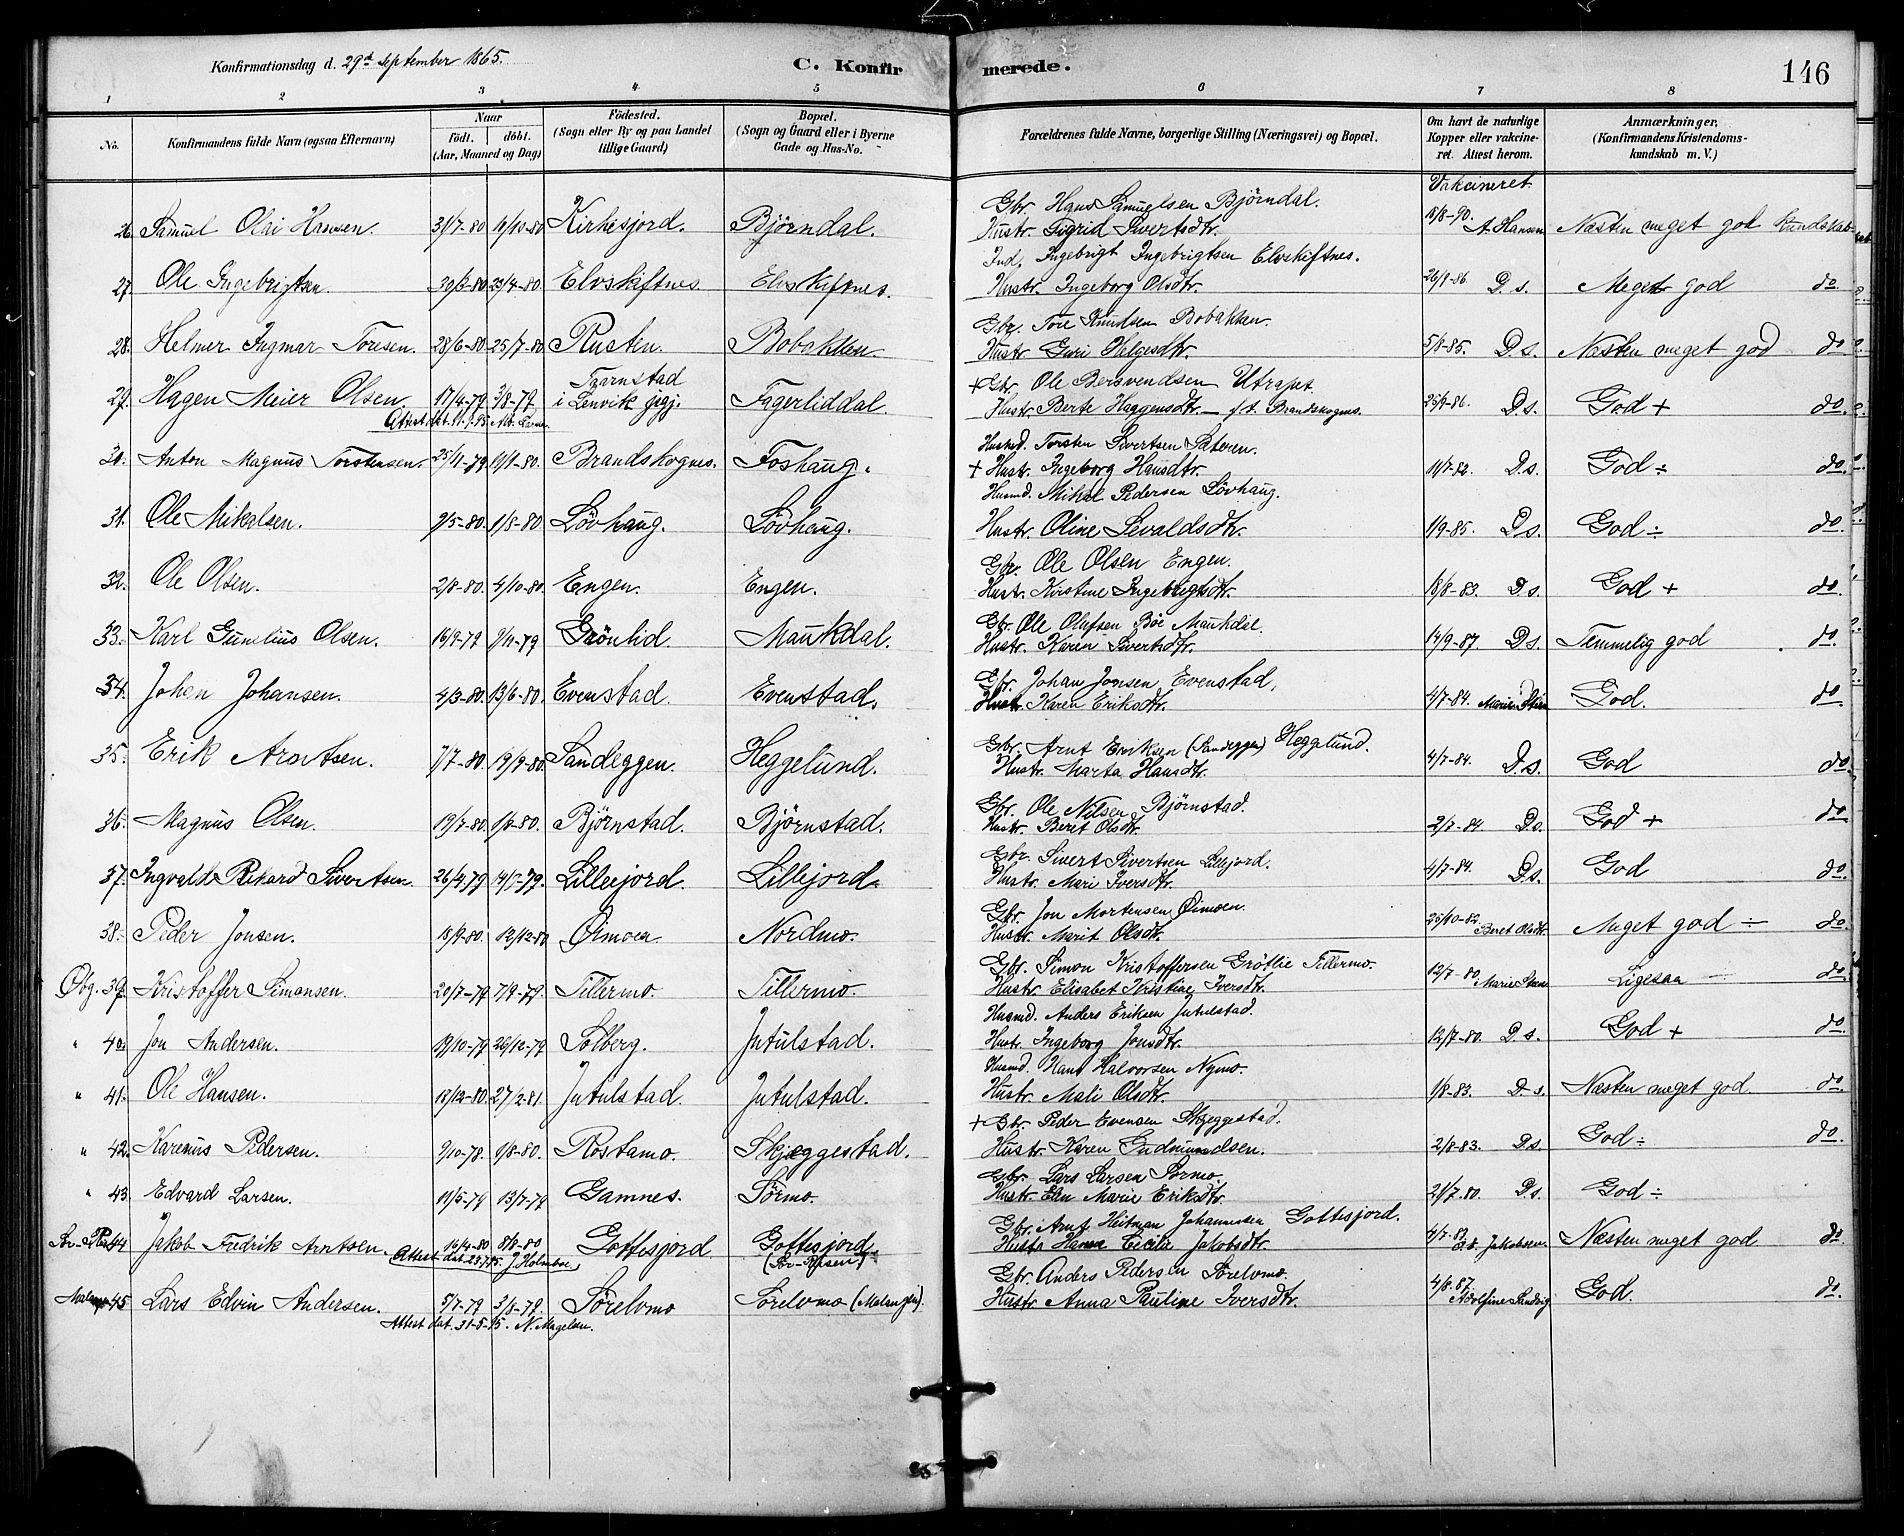 Konfirmationsdag d. 29de September 1865. C. Konfirmerede. 146
1 2 3 4 5 6 7 8
No. Konfirmandens fulde Navn (ogsaa Efternavn) Naar født. døbt. (Aar, Maaned og Dag) Födested. (Sogn eller By og paa Landet tillige Gaard) Bopæl. (Sogn og Gaard eller i Byerne Gade og Hus-No. Forældrenes fulde Navne, borgerlige Stilling (Næringsvei) og Bopæl. Om havt de naturlige Kopper eller vakcineret. Attest herom. Anmærkninger, (Konfirmandens Kristendomskundskab m. V.)
Vakcineret
Gbr Hans Samuelsen Bjørndal.
26. Samuel Olai Hansen. 31/7-80 10/10-80 Kirkesjord. Bjørndal. Hustr. Sigrid Sivertsdtr. 18/8-90. A. Hansen Næsten meget god Kundskab
Ind. Ingebrigt Ingebrigtsen Elvskiftnes.
27. Ole Ingebrigtsen 20/3-80 29/4-80. Elvskiftnes Elvskiftnes. Hustr. Ingeborg Olsdtr. 26/9-86. D. s. Meget god do
Gbr. Tore Knudsen Bobakken.
28. Helmer Ingmar Toresen. 28/6-80 25/7-80 Rusten. Bobakken Hustr Guri Helgesdtr. 5/8-85. D. s. Næsten meget god do
+ Gbr Ole Bersvendsen Utrapet
29. Hagen Meier Olsen 17/4-79 3/8-79 Transtad i Lenvik pgj. Fagerliddal. Hustr Berte Haagensdtr. f.t. Brandskognes. 25/9-86. D. s. God + do
Attest dat. 11/9.95. Alb. Larsen
Husmd. Torsten Sivertsen Sæteren.
30. Anton Magnus Torstensen. 25/11-79 11/1-80. Brandskognes. Foshaug. + Hustr. Ingeborg Hansdtr. 11/7-82. D. s. God ÷ do
Husmd. Mikal Pedersen Lövhaug.
31. Ole Mikalsen. 9/5-80. 1/8-80 Lövhaug. Lövhaug. Hustr. Oline Sivaldsdtr. 1/9-85. D. s. God ÷ do
Gbr. Ole Olsen Engen.
32. Ole Olsen. 2/8-80. 4/10-80. Engen. Engen. Hustr. Kristine Ingebrigtsdtr. 18/8-83. D s. God + do
Gbr. Ole Olufsen Böe Maukdal.
33. Karl Gunelius Olsen. 16/9-79 9/11-79 Grönlid. Maukdal. Hustr. Karen Sivertsdtr. 14/9-87. D. s. Temmelig god do
Gbr. Johan Jonsen Evenstad.
34. Johan Johansen. 4/3-80. 13/6-80. Evenstad. Evenstad. Hustr. Karen Eriksdtr. 4/7-84. Marie Steen God. do
Gbr. Arnt Eriksen (Sandeggen) Heggelund.
35. Erik Arntsen. 7/7-80 19/9-80. Sandeggen. Heggelund. Hustr. Marta Hansdtr. 4/7-84. D. s. God do
Gbr. Ole Nilsen Bjørnstad.
36. Magnus Olsen. 19/7-80. 1/8-80. Bjørnstad. Bjørnstad. Hustr. Beret Olsdtr. 2/7-84. D s. God + do
Gbr. Sivert Sivertsen Lillejord.
37. Ingvald Rikard Sivertsen. 26/4 79 14/7-79. Lillejord. Lillejord. Hustr. Mari Iversdtr. 4/7-84. D. s. God do
Gbr. Jon Mortensen Øimoen.
38. Peder Jonsen. 18/9-80. 12/12-80 Øimoen. Nordmo. Hustr. Marit Olsdtr. 25/10-82. Beret Olsdtr. Meget god ÷ do
Gbr. Simon Kristoffersen Grötlie Tillermo.
Obg. 39. Kristoffer Simonsen. 20/7-79 7/9-79. Tillermo. Tillermo. Hustr. Elisabet Kristine Iversdtr. 12/7-80. Marie Steen Ligesaa do
Husmd. Anders Eriksen Jutulstad.
" 40. Jon Andersen. 19/10-79 26/12-79 Solberg. Jutulstad. Hustr. Ingeborg Jonsdtr. 12/7-80. D. s. God + do
Husmd. Hans Halvorsen Nymo.
" 41. Ole Hansen. 18/12-80 27/2-81. Jutulstad. Jutulstad. Hustr. Mali Olsdtr. 1/8-83. D. s. Næsten meget god. do
+ Gbr Peder Evensen Skjæggestad.
" 42. Karenus Pedersen. 9/10-78. 1/8-80. Rostamo. Skjæggestad. Hustr. Karen Gudmundsen. 2/8-83. D s. God ÷ do
Gbr. Lars Larsen Sørmo.
" 43. Edvard Larsen. 19/5-79 13/7-79 Gamnes. Sørmo. Hustr Elen Marie Eriksdtr. 21/7-80. D s. God ÷
Gbr. Arnt Heitman Johannesen Gottesjord.
44 Jakob Fredrik Arntsen. 16/4-80 8/8-80 Gottesjord Gottesjord Hustr Hanna Cecilie Jakobsdtr. 4/7-82 Jakobsen. Næsten meget god do
Attest dat. 23.7.95. J. Holmboe
Gbr. Anders Pedersen Sørelvmo.
45 Lars Edvin Andersen. 5/7-79 3/8-79. Sørelvmo Sørelvmo (Malangen). Hustr. Anna Pauline Iversdtr. 4/8-87. Adolfine Sandvig God. do
Attest dat. 31-5-95. N. Magelsen.